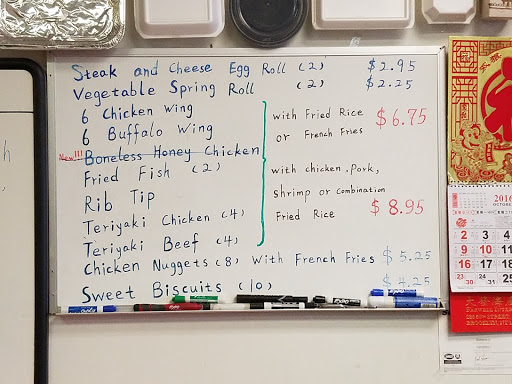 Steak and Cheese Egg Roll (2) $2.95
Vegetable Spring Roll (2) $2.25
6 Chicken Wing
6 Buffalo Wing
New!!! Boneless Honey Chicken
Fried Fish (2)
Rib Tip
Teriyaki Chicken (4)
Teriyaki Beef (4)
with Fried Rice $6.75
or French Fries
with chicken, pork,
shrimp or combination
Fried Rice $8.95
Chicken Nuggets (8) With French Fries $5.25
Sweet Biscuits (10) $4.25
2016
OCTOBER
2 3 4
9 10 11
16 17 18
23 24 25
30 31
EXPO